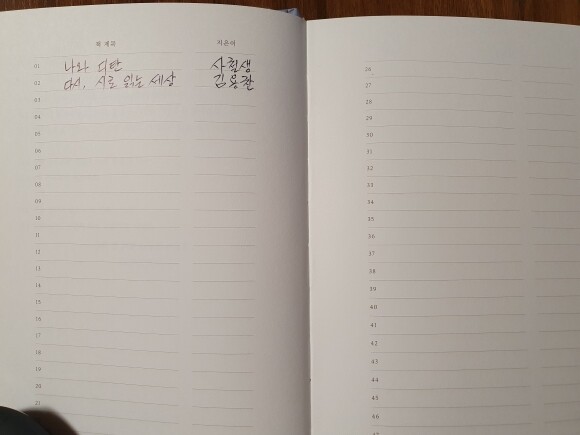 책 제목 지은이
01 나와 디탄 사힘생
02 다시, 시로 읽는 세상 김용관
03
04
05
06
07
08
09
10
11
12
13
14
15
16
17
18
19
20
21
26
27
28
29
30
31
32
33
34
35
36
37
38
39
40
41
42
43
44
45
46
47